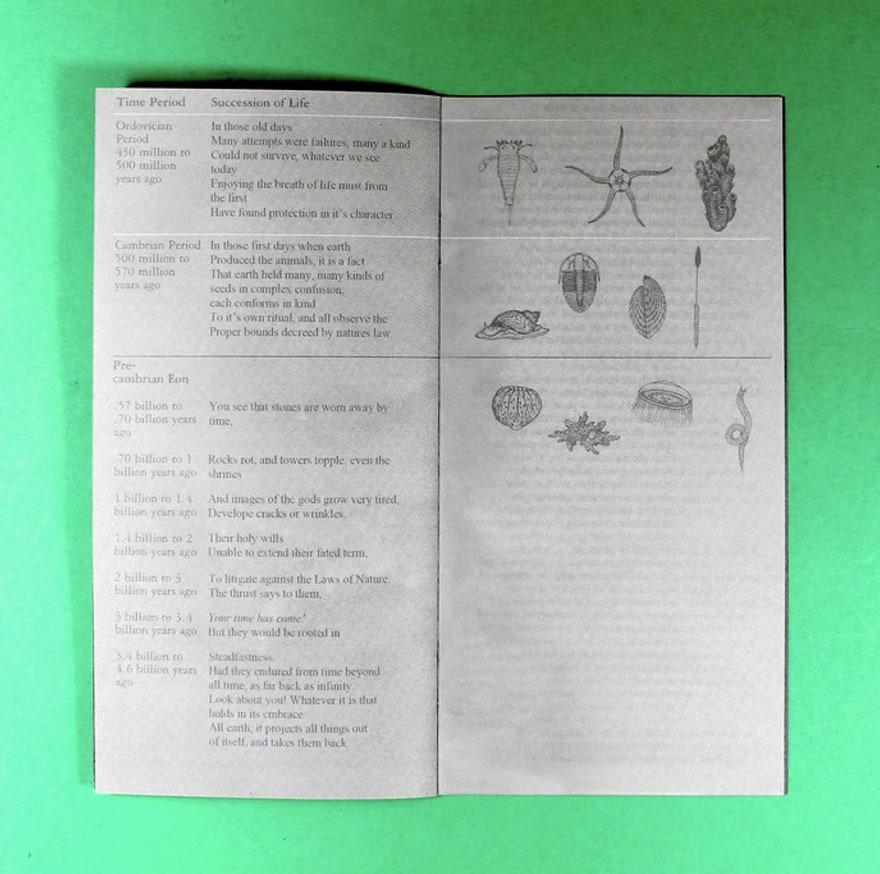 Time Period Succession of Life
Ordovician
Period
430 million to
500 million
years ago
In those old days
Many attempts were failures, many a kind
Could not survive, whatever we see
today
Enjoying the breath of life must from
the first
Have found protection in it's character
Cambrian Period
500 million to
570 million
years ago
In those first days when earth
Produced the animals, it is a fact
That earth held many, many kinds of
seeds in complex confusion;
each conforms in kind
To it's own ritual, and all observe the
Proper bounds decreed by natures law
Pre-
cambrian Eon
.57 billion to
.70 billion years
ago
You see that stones are worn away by
time,
.70 billion to 1
billion years ago
Rocks rot, and towers topple, even the
shrines
1 billion to 1.4
billion years ago
And images of the gods grow very tired,
Develope cracks or wrinkles,
1.4 billion to 2
billion years ago
Their holy wills
Unable to extend their fated term,
2 billion to 3
billion years ago
To litigate against the Laws of Nature.
The thrust says to them,
3 billion to 3.4
billion years ago
Your time has come!
But they would be rooted in
3.4 billion to
4.6 billion years
ago
Steadfastness.
Had they endured from time beyond
all time, as far back as infinity.
Look about you! Whatever it is that
holds in its embrace
All earth, it projects all things out
of itself, and takes them back